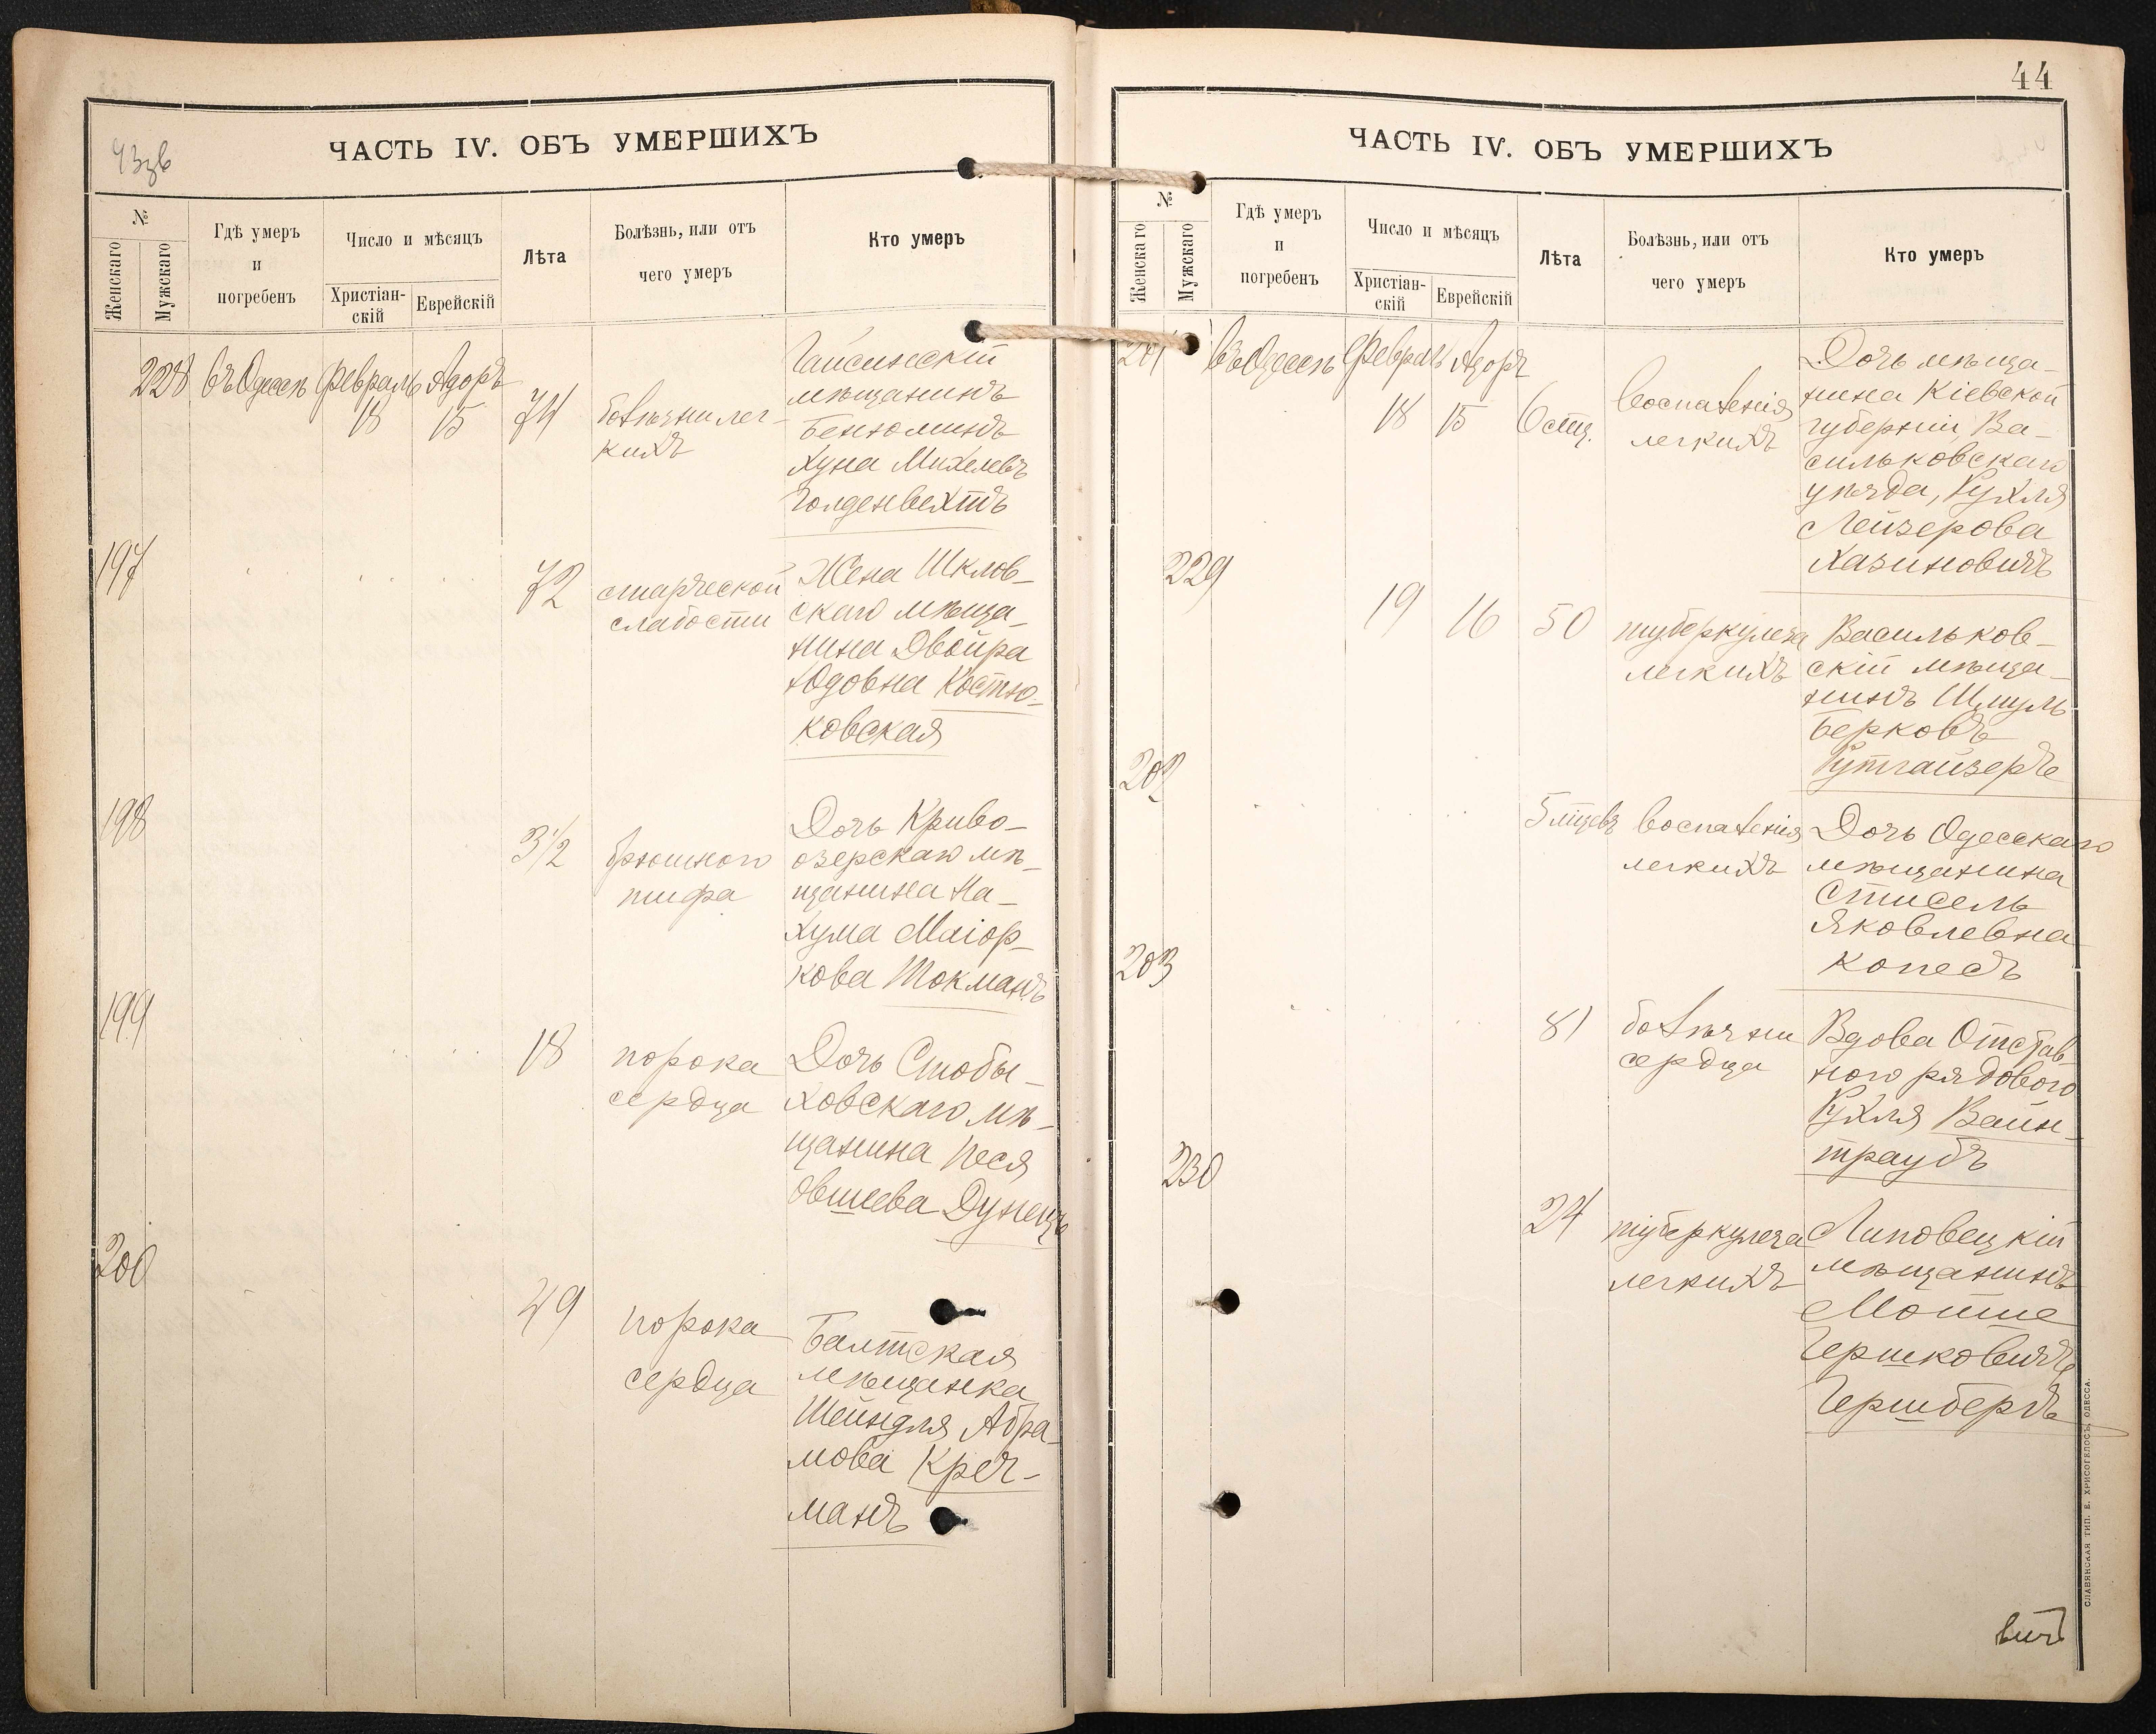 ЧАСТЬ IV. ОБЪ УМЕРШИХЪ
№
Женскаго
Мужскаго
Гдѣ умеръ
и
погребенъ
Число и мѣсяцъ
Христіан-
скій
Еврейскій
Лѣта
Болѣзнь, или отъ
чего умеръ
Кто умеръ
228 въ Одессѣ Февраль Адоръ
18 15 74
болѣзни лег-
кихъ
Гайсинскій
мѣщанинъ
Беньоминъ
Хуна Михелевъ
Голденвехтъ
197
72
старческой
слабости
Жена Шклов-
скаго мѣща-
нина Двойра
Юдовна Костю-
ковская
198
3 1/2
брюшного
тифа
Дочь Криво-
озерскаго мѣ-
щанина На-
хума Маіор-
кова Токманъ
199
18
порока
сердца
Дочь Стобы-
ховскаго мѣ-
щанина Песя
Овшеева Дунецъ
200
49
порока
сердца
Балтская
мѣщанка
Шейндля Абра-
мова Креч-
манъ
44
ЧАСТЬ IV. ОБЪ УМЕРШИХЪ
№
Женскаго
Мужскаго
Гдѣ умеръ
и
погребенъ
Число и мѣсяцъ
Христіан-
скій
Еврейскій
Лѣта
Болѣзнь, или отъ
чего умеръ
Кто умеръ
201 въ Одессѣ Февраль Адоръ
18 15 6 стц.
воспаленія
легкихъ
Дочь мѣща-
нина Кіевской
губерніи, Ва-
сильковскаго
уѣзда, Рухля
Лейзерова
Хазиновичъ
229
19 16 50
туберкулеза
легкихъ
Васильков-
скій мѣща-
нинъ Шмуль
Берковъ
Гутгайзеръ
202
5 мцевъ
воспаленія
легкихъ
Дочь Одесскаго
мѣщанина
Стисель
Яковлевна
Копесъ
203
81
болѣзни
сердца
Вдова Отстав
ного рядового
Рухля Вайн-
траубъ
230
24
туберкулеза
легкихъ
Липовецкій
мѣщанинъ
Мошие
Гершковичъ
Гершбергъ
СЛАВЯНСКАЯ ТИП. Е. ХРИСОГЕЛОСЪ, ОДЕССА.